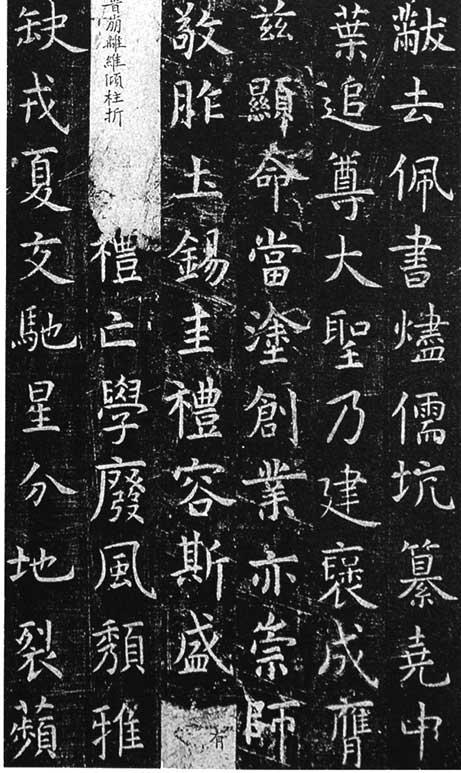 黻去佩書燼儒坑纂堯中
葉追尊大聖乃建襃成膺
茲顯命當塗創業亦崇師
敬胙土錫圭禮容斯盛有
晉崩離維傾柱折禮亡學廢風頹雅
缺戎夏交馳星分地裂蘋